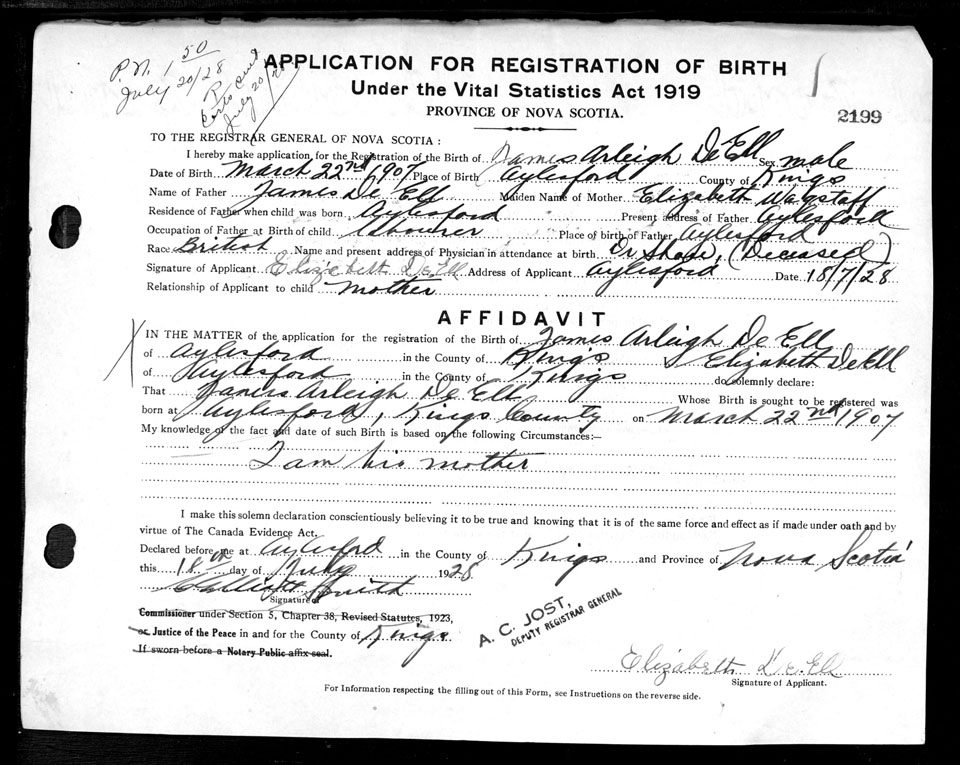 P.N. 1 50
July 20/28
July 20/28
APPLICATION FOR REGISTRATION OF BIRTH
Under the Vital Statistics Act 1919
PROVINCE OF NOVA SCOTIA.
2199
TO THE REGISTRAR GENERAL OF NOVA SCOTIA:
I hereby make application for the Registration of the Birth of James Arleigh De Ell Sex male
Date of Birth March 22nd 1907 Place of Birth Aylesford County of Kings
Name of Father James De Ell Maiden Name of Mother Elizabeth Wagstaff
Residence of Father when child was born Aylesford Present address of Father Aylesford
Occupation of Father at Birth of child Labourer Place of birth of Father Aylesford
Race British Name and present address of Physician in attendance at birth Dr (Deceased)
Signature of Applicant Elizabeth De Ell Address of Applicant Aylesford Date 18/7/28
Relationship of Applicant to child mother
AFFIDAVIT
IN THE MATTER of the application for the registration of the Birth of James Arleigh De Ell
of Aylesford in the County of Kings I, Elizabeth De Ell
of Aylesford in the County of Kings do solemnly declare:
That James Arleigh De Ell Whose Birth is sought to be registered was
born at Aylesford, Kings County on March 22nd 1907
My knowledge of the fact and date of such Birth is based on the following Circumstances:—
I am his mother
I make this solemn declaration conscientiously believing it to be true and knowing that it is of the same force and effect as if made under oath and by
virtue of The Canada Evidence Act.
Declared before me at Aylesford in the County of Kings and Province of Nova Scotia
this 18th day of July 1928
Smith
Signature of
Commissioner under Section 5, Chapter 38, Revised Statutes, 1923,
or Justice of the Peace in and for the County of Kings
If sworn before a Notary Public affix seal.
A. C. JOST,
DEPUTY REGISTRAR GENERAL
Elizabeth De Ell
Signature of Applicant.
For Information respecting the filling out of this Form, see Instructions on the reverse side.